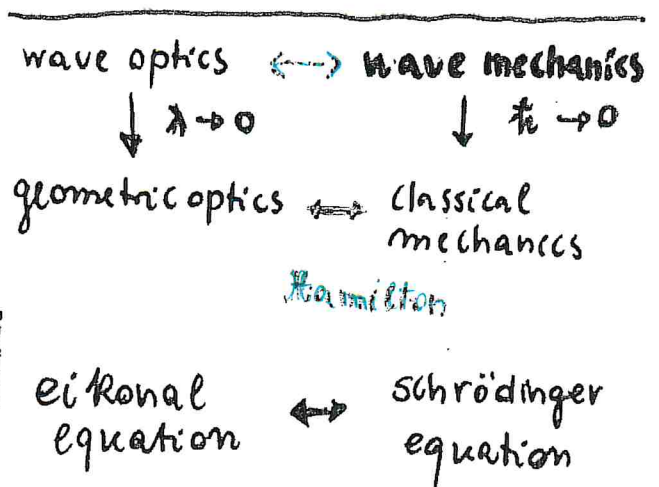 wave optics <--> wave mechanics
↓ λ → 0 ↓ ħ → 0
geometric optics ⟺ classical
mechanccs
Hamilton
eikonal ↔ schrödinger
equation equation